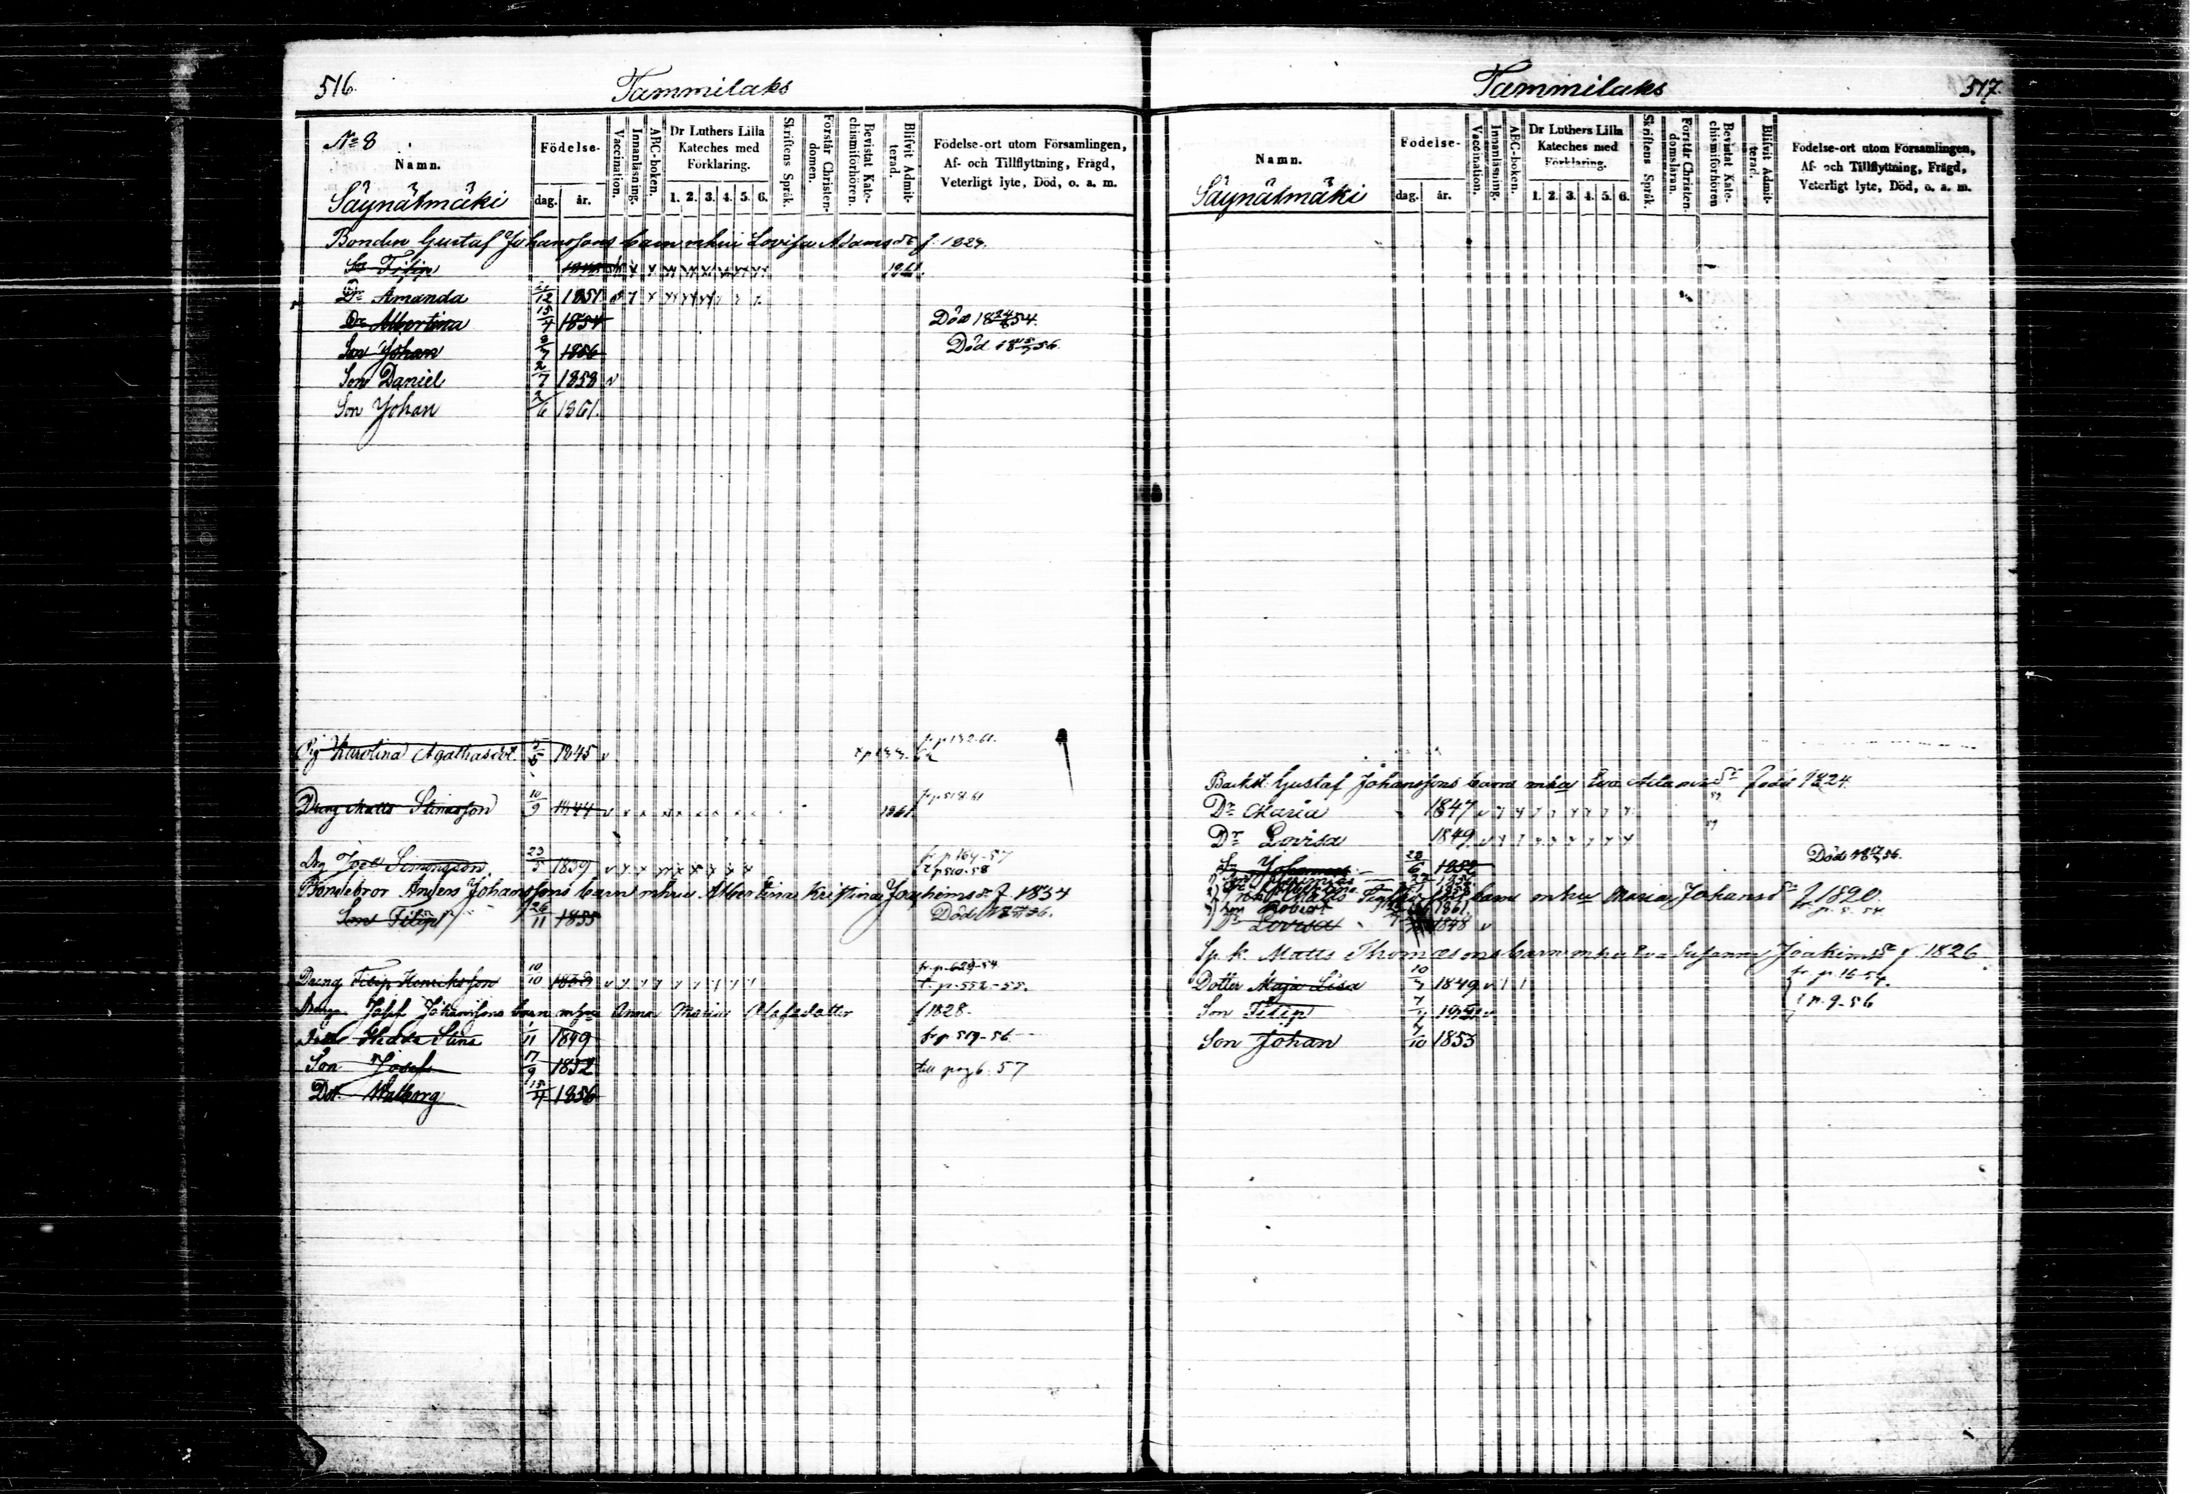 516.
Tammilaks
No 8
Namn.
Födelse-
dag.
år.
Vaccination.
Innanläsning.
ABC-boken.
Dr Luthers Lilla Kateches med Förklaring.
1. 2. 3. 4. 5. 6.
Skriftens Språk.
Förstår Christendomen.
Bevistat Katechismiförhören.
Blifvit Admitterad.
Födelse-ort utom Församlingen,
Af- och Tillflyttning, Frägd,
Veterligt lyte, Död, o. a. m.
Säynätmäki
Bonden Gustaf Johanssons barn m hu Lovisa Adamsdr f. 1824.
Filip 1861.
Dr Amanda 12 1851
Dr Albertina 15/4 1854 Död 18 24/8 54.
Son Johan 1856 Död 18 56.
Son Daniel 2/7 1858
Son Johan 2/6 1861.
Pig Karolina Agathasdr. 1845
Dräng Matts Simonsson 10/9 1844 1861
Drg Joel Simonsson 23/5 1839 fr p 164-57
t p 510-58
Bondebror Anders Johanssons barn m hu Albertina Kristina Joachimsdr f. 1834
Son Filip 26/11 1855 Död 18 56.
Dräng Filip Henriksson 10/10 1838 fr. p. 629-54
t. p. 552-55.
Dräng Josef Johanssons barn m hu Anna Maria Olafsdotter f 1828.
Hedda Stina 1/11 1849 fr p 519-56
Son Josef 17/9 1852 till pag 6. 57
Dot. Walborg 15/4 1856
Tammilaks
517.
Namn.
Födelse-
dag.
år.
Vaccination.
Innanläsning.
ABC-boken.
Dr Luthers Lilla Kateches med Förklaring.
1. 2. 3. 4. 5. 6.
Skriftens Språk.
Förstår Christendomsläran.
Bevistat Katechismiförhören
Blifvit Admitterad.
Födelse-ort utom Församlingen,
Af- och Tillflyttning, Frägd,
Veterligt lyte, Död, o. a. m.
Säynätmäki
Backst. Gustaf Johanssons barn m hu Eva Adamsdr född 1824.
Dr Maria 1847
Dr Lovisa 1849
Johannes 28/6 1852 Död 18 56.
Matts barn m hu Maria Johansdr f 1820.
Son Robert 1861
Dr Lovisa 1848
Sp. k. Matts Thomasons barn m hu Eva Susanna Joakimsdr f. 1826
Dotter Maja Lisa 10/7 1849 fr. p. 16-54.
Son Filip t p. 9-56
Son Johan 7/10 1853